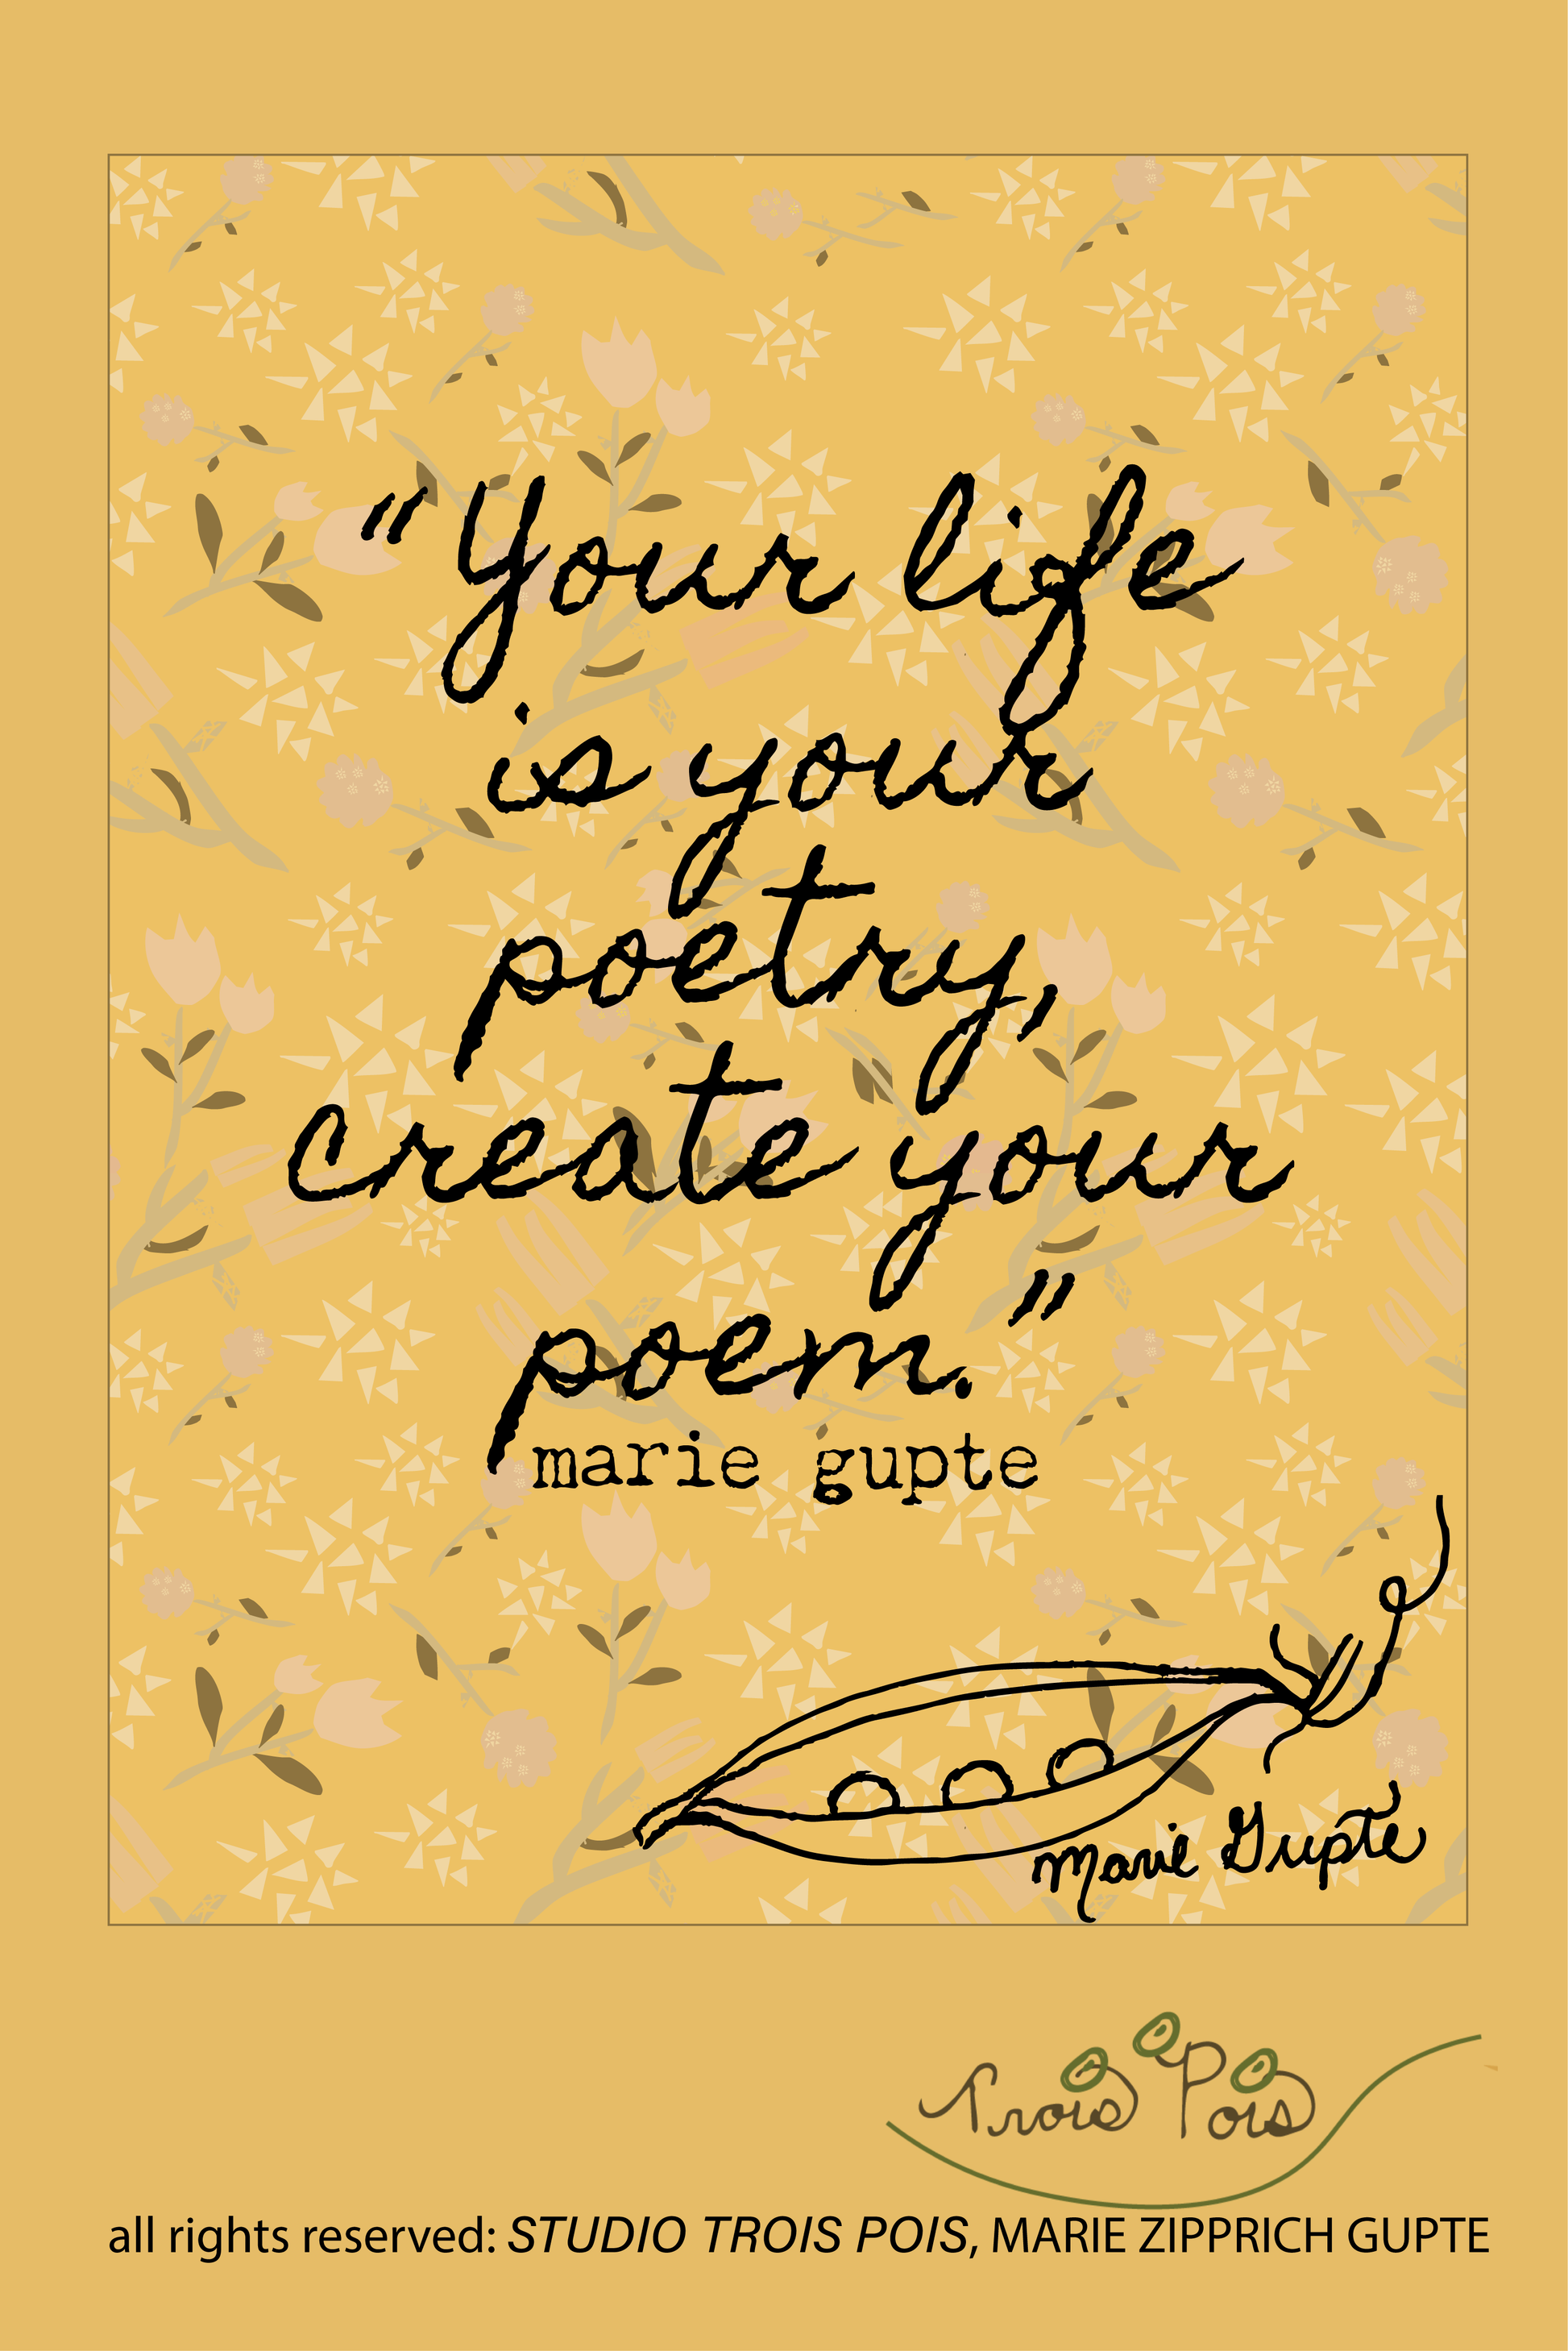 "Your life
is your
poetry,
create your
poem."
marie gupte
Marie Gupte
Trois Pois
all rights reserved: STUDIO TROIS POIS, MARIE ZIPPRICH GUPTE